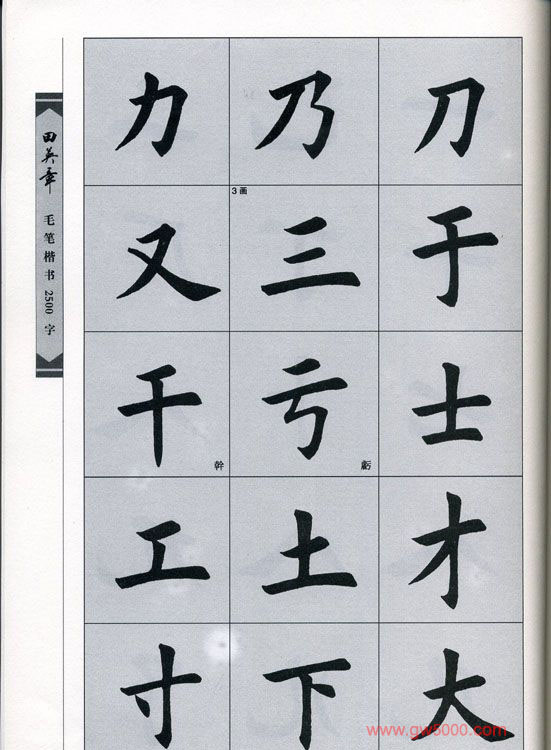 田英章
毛笔楷书2500字
力 乃 刀
3画
又 三 于
干 亏 士
幹 虧
工 土 才
寸 下 大
www.gw5000.com